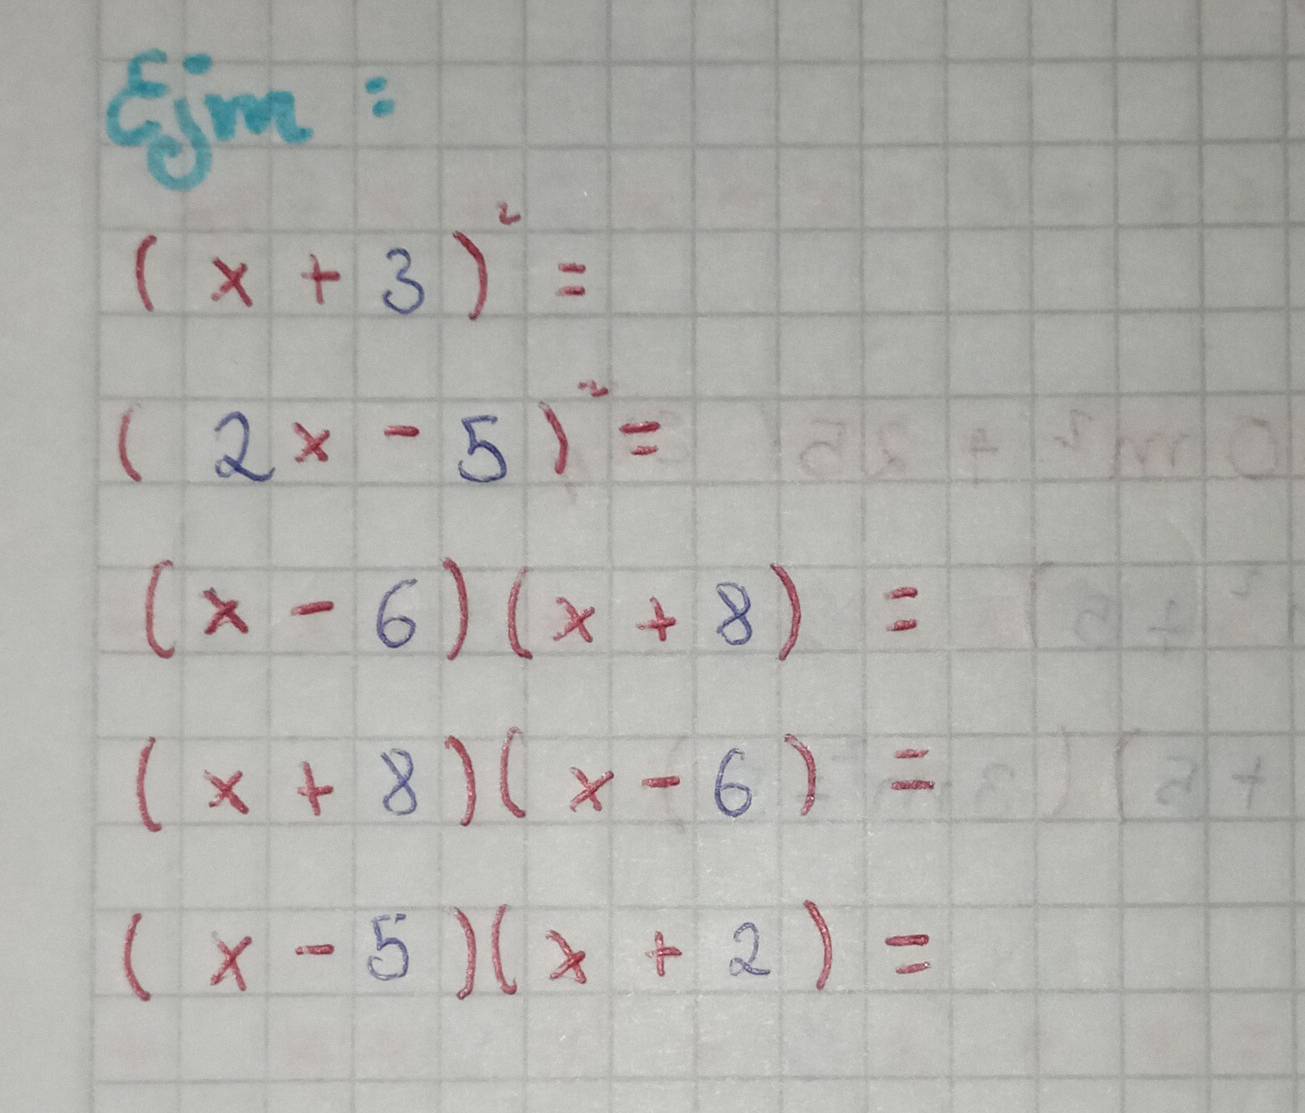 Ejm :
( x + 3 )² =
( 2x - 5 )² =
(x - 6)(x + 8) =
(x + 8)(x - 6) =
( x - 5 )(x + 2 ) =